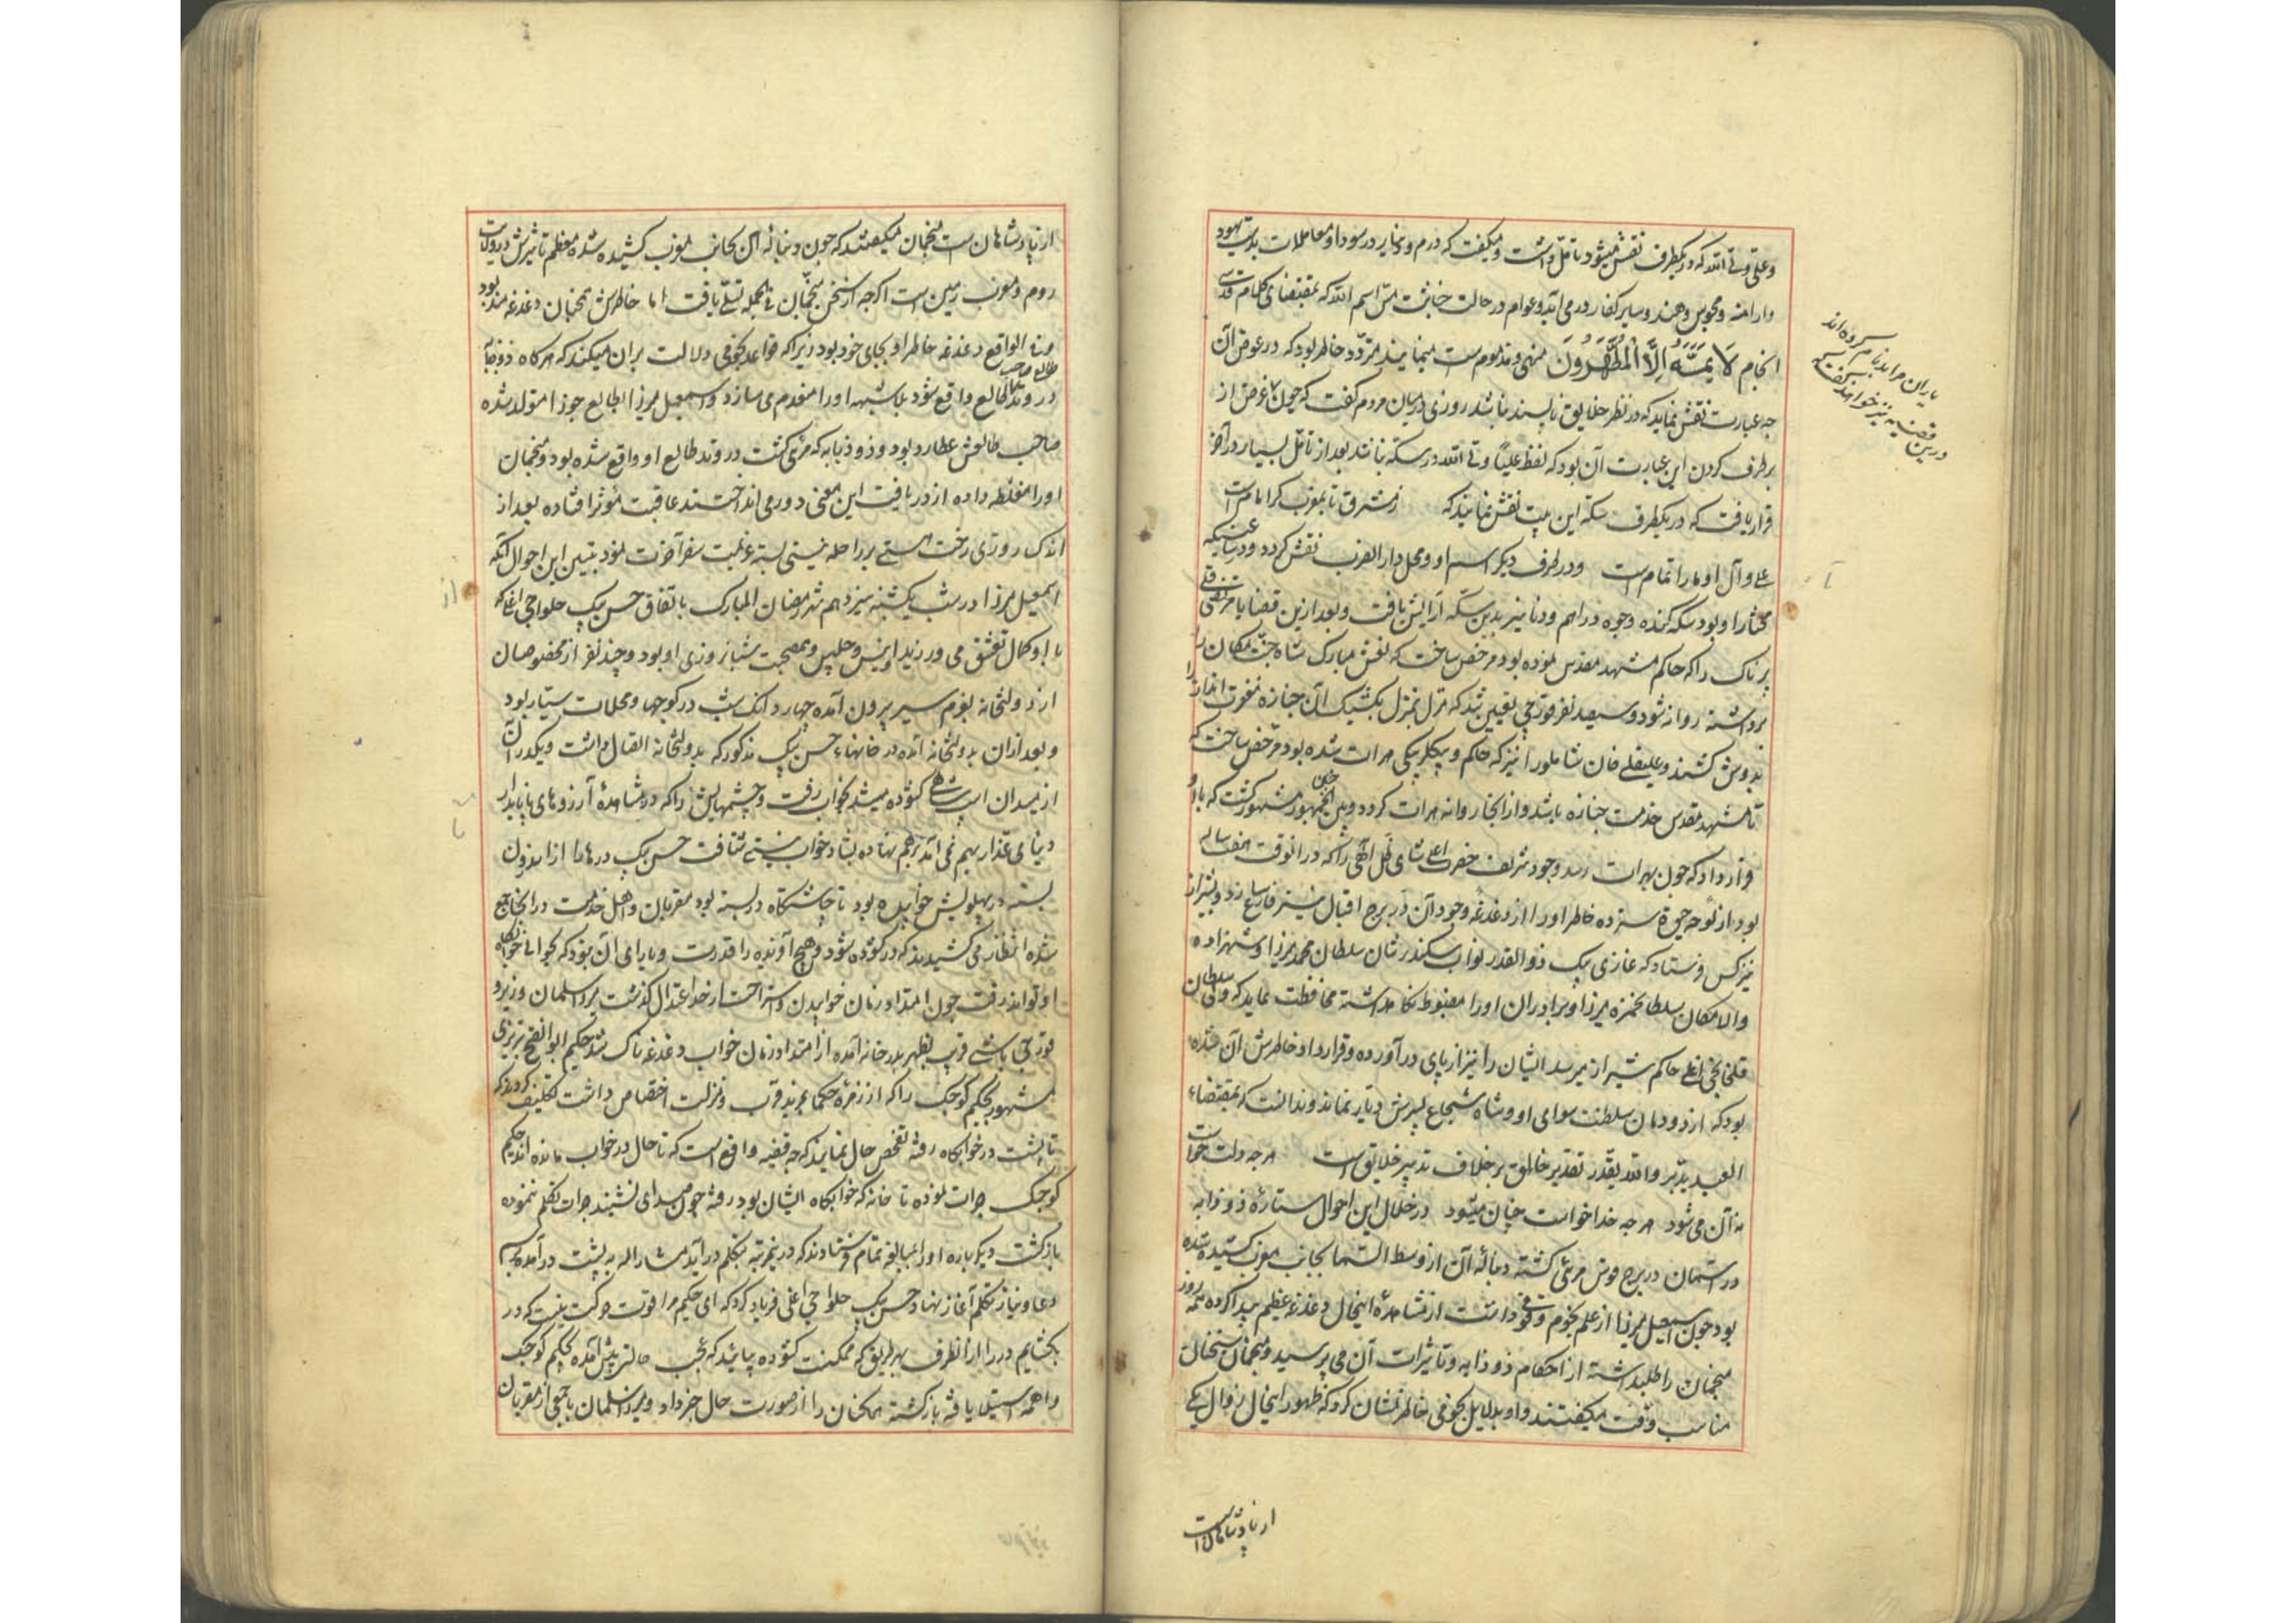 وعلی ولی الله که در یکطرف نقش میشود تامل داشت و میکفت که درم و دینار در سودا و معاملات بدست یهود
و ارامنه و مجوس و هند و سایر کفار در می آید و عوام در حالت خباثت مس اسم الله که بمقتضای کلام قدسی
انجام لَا يَمَسُّهُ إِلَّا الْمُطَهَّرُونَ منهی و مذموم است مینمایند متردد خاطر بود که در عوض آن
چه عبارت نقش نماید که در نظر خلایق ناپسند نباشد روزی در میان مردم کفت که چون غرض از
برطرف کردن این عبارت آن بود که لفظ علیا ولی الله در سکه نباشد بعد از تامل بسیار در آخر
قرار یافت که در یکطرف سکه این بیت نقش نمایند که زمشرق تا بمغرب کر امام است
علی و آل او ما را تمام است و در طرف دیکر اسم او و محل دار الضرب نقش کردد
مختار او بود سکه کنده وجوه دراهم و دنانیر بدین سکه آرایش یافت و بعد ازین قضایا مرتضی قلی
پرناک را که حاکم مشهد مقدس نموده بود مرخص ساخت که نعش مبارک شاه جنت مکان را
برداشته روانه شود و سیصد نفر قورچی تعیین شد که منزل بمنزل بکشیک آن جنازه مغفرت اندازه را
بدوش کشند و علیقلی خان شاملو را نیز که حاکم و بیکلربیکی هرات شده بود مرخص ساخت که
تا مشهد مقدس خدمت جنازه باشد و از انجا روانه هرات کردد و بین الجمهور چنین مشهور کشت که با او
قرار داد که چون بهرات رسد وجود شریف حضرت اعلی شاهی ظل الهی را که در انوقت هفت ساله
بود از لوحه حیوة سترده خاطر او را از دغدغه وجود آن در برج اقبال نیز فارغ سازد و بشیراز
نیز کس فرستاد که غازی بیک ذوالقدر نواب سکندر شان سلطان محمد میرزا و شهزاده
والامکان سلطان حمزه میرزا و برادران او را مضبوط نکاه داشته محافظت نماید که ولی سلطان
قلخانچی اغلی حاکم شیراز میرسد ایشان را نیز از پای در آورده و قرار داد خاطرش آن شده
بود که از دودمان سلطنت سوای او و شاه شجاع پسرش دیار نماند و ندانست که بمقتضاء
العبد یدبر و الله یقدر تقدیر خالق بر خلاف تدبیر خلایق است هر چه دلت خواست
نه آن می شود هر چه خدا خواست چنان میشود در خلال این احوال ستاره ذوذوابه
در آسمان در برج قوس مرئی کشته دنباله آن از وسط السما بجانب مغرب کشیده شده
بود چون اسمعیل میرزا از علم نجوم وقوفی داشت از مشاهده اینحال دغدغه عظیم پیدا کرده همه روز
منجمان را طلبداشته از احکام ذوذوابه و تاثیرات آن می پرسید و منجمان سخنان
مناسب وقت میکفتند و او بدلایل نجومی خاطرنشان کرد که ظهور اینحال زوال یکی
از پادشاهان است
یاران مرا ندانم سر کرده اند
درین قضیه نیز خواهند کفت
از پادشاهان است منجمان میکفتند که چون دنباله آن بجانب مغرب کشیده شده معظم تاثیرش در ولایت
روم و مغرب زمین است اکرچه از سخن منجمان فی الجمله تسلی یافت اما خاطرش همچنان دغدغه مند بود
و فی الواقع دغدغه خاطر او بجای خود بود زیرا که قواعد نجومی دلالت بر آن میکند که هر کاه ذوذوابه
در وتد طالع واقع شود بلاشبهه او را منعدم می سازد و اسمعیل میرزا بطالع جوزا متولد شده
صاحب طالعش عطارد بود و ذوذوابه که مرئی کشت در وتد طالع او واقع شده بود و منجمان
او را مغلطه داده از دریافت این معنی دور می انداختند عاقبت موثر افتاده بعد از
اندک روزی رخت هستی بر راحله نیستی بسته عزیمت سفر آخرت نمود تبیین این احوال آنکه
اسمعیل میرزا در شب یکشنبه سیزدهم شهر رمضان المبارک باتفاق حسن بیک حلواچی اغلی که
با او کمال تعشق می ورزید و انیس و جلیس و هم صحبت شبانروزی او بود و چند نفر از مخصوصان
از دولتخانه بعزم سیر بیرون آمده چهار دانک شب در کوچها و محلات سیار بود
و بعد از آن بدولتخانه آمده در خانهاء حسن بیک مذکور که بدولتخانه اتصال داشت و یکدر آن
از میدان اسب شاهی کشوده میشد بخواب رفت و چشمهایش را که در مشاهده آرزوهای ناپایدار
دنیای غدار بهم نمی آمد برهم نهاده بشادخواب نیستی شتافت حسن بیک درها را از اندرون
بسته در پهلویش خوابیده بود تا چاشتکاه در بسته بود مقربان و اهل خدمت در انجا جمع
شده انتظار می کشیدند که در کشوده شود و هیچ آفریده را قدرت و یارای آن نبود که بحوالی خوابکاه
او تواند رفت چون امتداد زمان خوابیدن و استراحت از حد اعتدال کذشت میرزا سلمان وزیر و
قورچی باشی قریب بظهر بدر خانه آمده از امتداد زمان خواب دغدغه ناک شد حکیم ابوالفتح تبریزی
مشهور بحکیم کوچک را که از زمره حکما بمزید قرب و منزلت اختصاص داشت تکلیف کردند که
تا پشت در خوابکاه رفته تفحص حال نمایند که چه قضیه واقع است که تا حال در خواب مانده اند حکیم
کوچک جرات نموده تا خانه که خوابکاه ایشان بود رفته چون صدای نشنید جرات تکلم ننموده
بازکشت دیکر باره او را بمبالغه تمام فرستادند که درینمرتبه بتکلم در آید مشارالیه به پشت در آمده برسم
دعا و نیاز تکلم آغاز نهاد حسن بیک حلواچی اغلی فریاد کرد که ای حکیم مرا قوت حرکت نیست که در
بکشایم در را از آنطرف بهر طریق که ممکنست کشوده بیائید که عجب حالتی پیش آمده حکیم کوچک
واهمه استیلا یافته بازکشته همکنان را از صورت حال خبر داد و میرزا سلمان با جمعی از مقربان